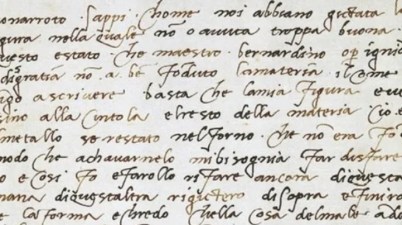 onarroto . sappi chome noi abbiano gictata la
gura nella quale no o avuta troppa buona
uesto e stato che maestro bernardino o p ignio
disgratia no a be foduto la materia il come
go a scrivere basta che la mia figura e vu
sino alla cintola el resto della materia cioe
l metallo se restato nel forno che no era fo
modo che a chavarnelo mi bisognia far disfare
o e chosi fo e farollo rifare ancora di questa
mana di quest altra rigictero di sopra e finiro
e la forma e chredo chella cosa del male and